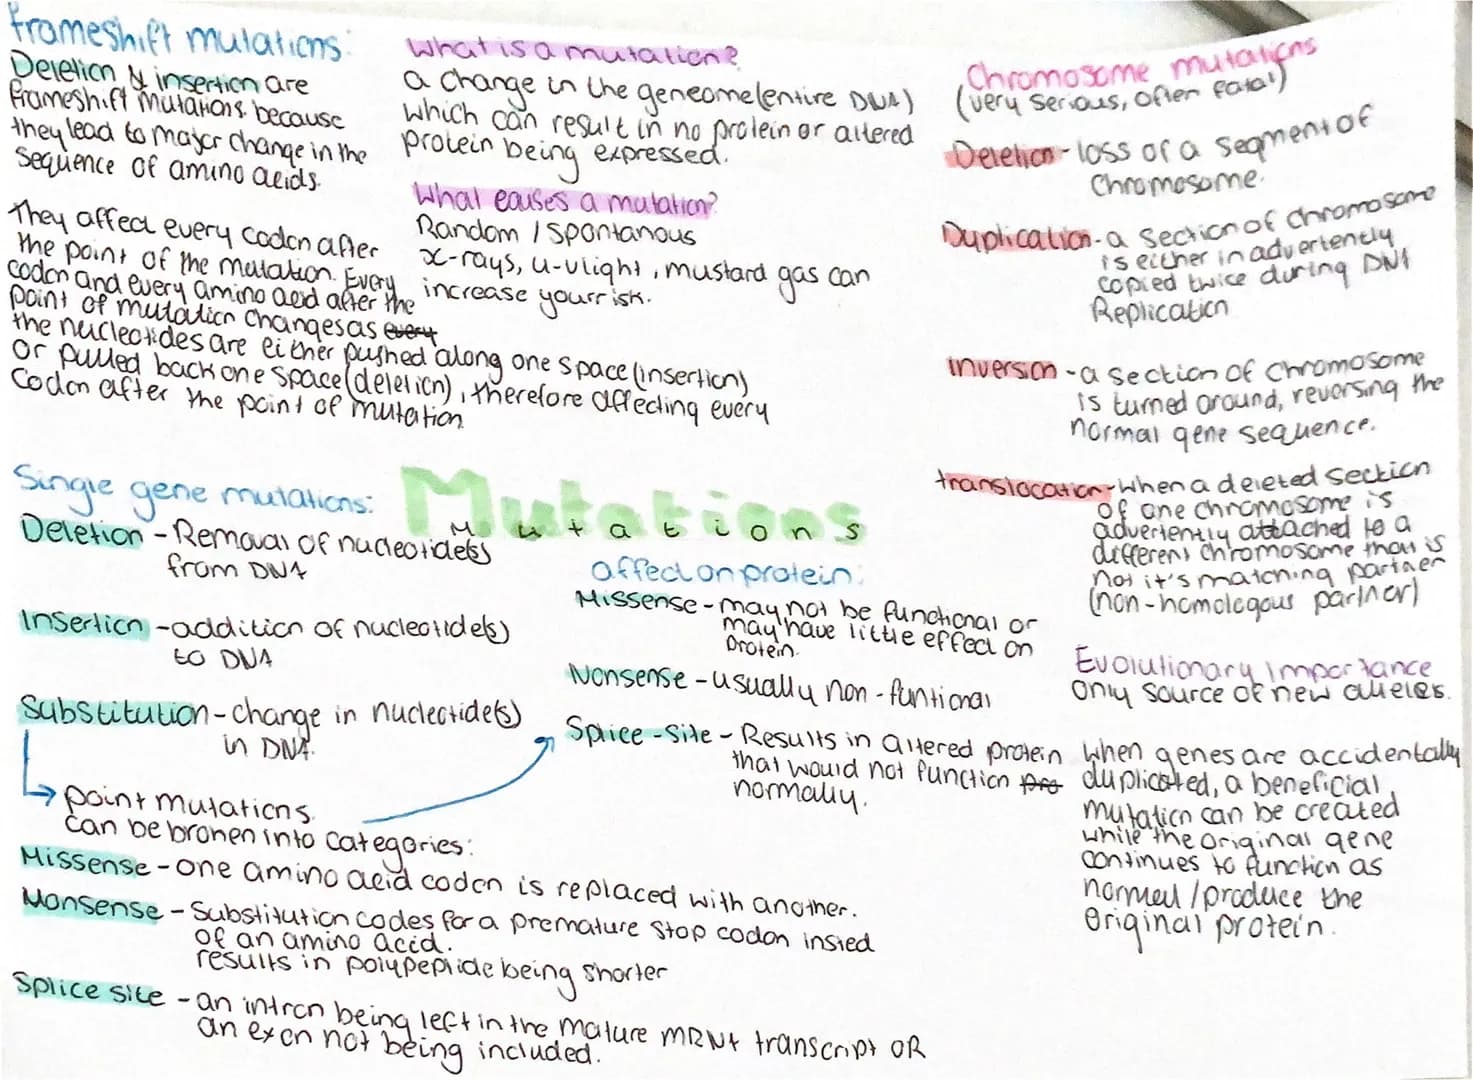 frameshift mutations:
Deletion & insertion are
frameshift mutations because
they lead to major change in the
sequence of amino acids.
They affect every codon after
the point of the mutation. Every
codon and every amino acid after the
point of mutation changes as every
the nucleotides are either pushed along one space (insertion)
or pulled back one space (deletion), therefore affecting every
codon after the point of mutation
What is a mutation?
a change in the geneome (entire DNA)
which can result in no protein or altered
protein being expressed.
What causes a mutation?
Random / Spontanous
x-rays, u-v light, mustard gas can
increase your risk.
Chromosome mutations
(very serious, often fatal)
Deletion - loss of a segment of
chromosome.
Duplication - a section of chromosome
is either inadvertently
copied twice during DNA
Replication
inversion - a section of chromosome
is turned around, reversing the
normal gene sequence.
translocation - When a deleted section
of one chromosome is
advertently attached to a
different chromosome that is
not it's matching partner
(non-homologous partner)
Evolutionary importance
only source of new alleles.
When genes are accidentally
duplicated, a beneficial
mutation can be created
while the original gene
continues to function as
normal / produce the
original protein.
Single gene mutations:
Deletion - Removal of nucleotide(s)
from DNA
Insertion - addition of nucleotide(s)
to DNA
Substitution - change in nucleotide(s)
in DNA.
point mutations
can be broken into categories:
Missense - one amino acid codon is replaced with another.
Nonsense - Substitution codes for a premature stop codon insted
of an amino acid.
results in polypeptide being shorter
Splice site - an intron being left in the mature mRNA transcript OR
an exon not being included.
Mutations
Mutations
affect on protein:
Missense - may not be functional or
may have little effect on
protein.
Nonsense - usually non-funtional
Splice-site - Results in altered protein
that would not function pro
normally.